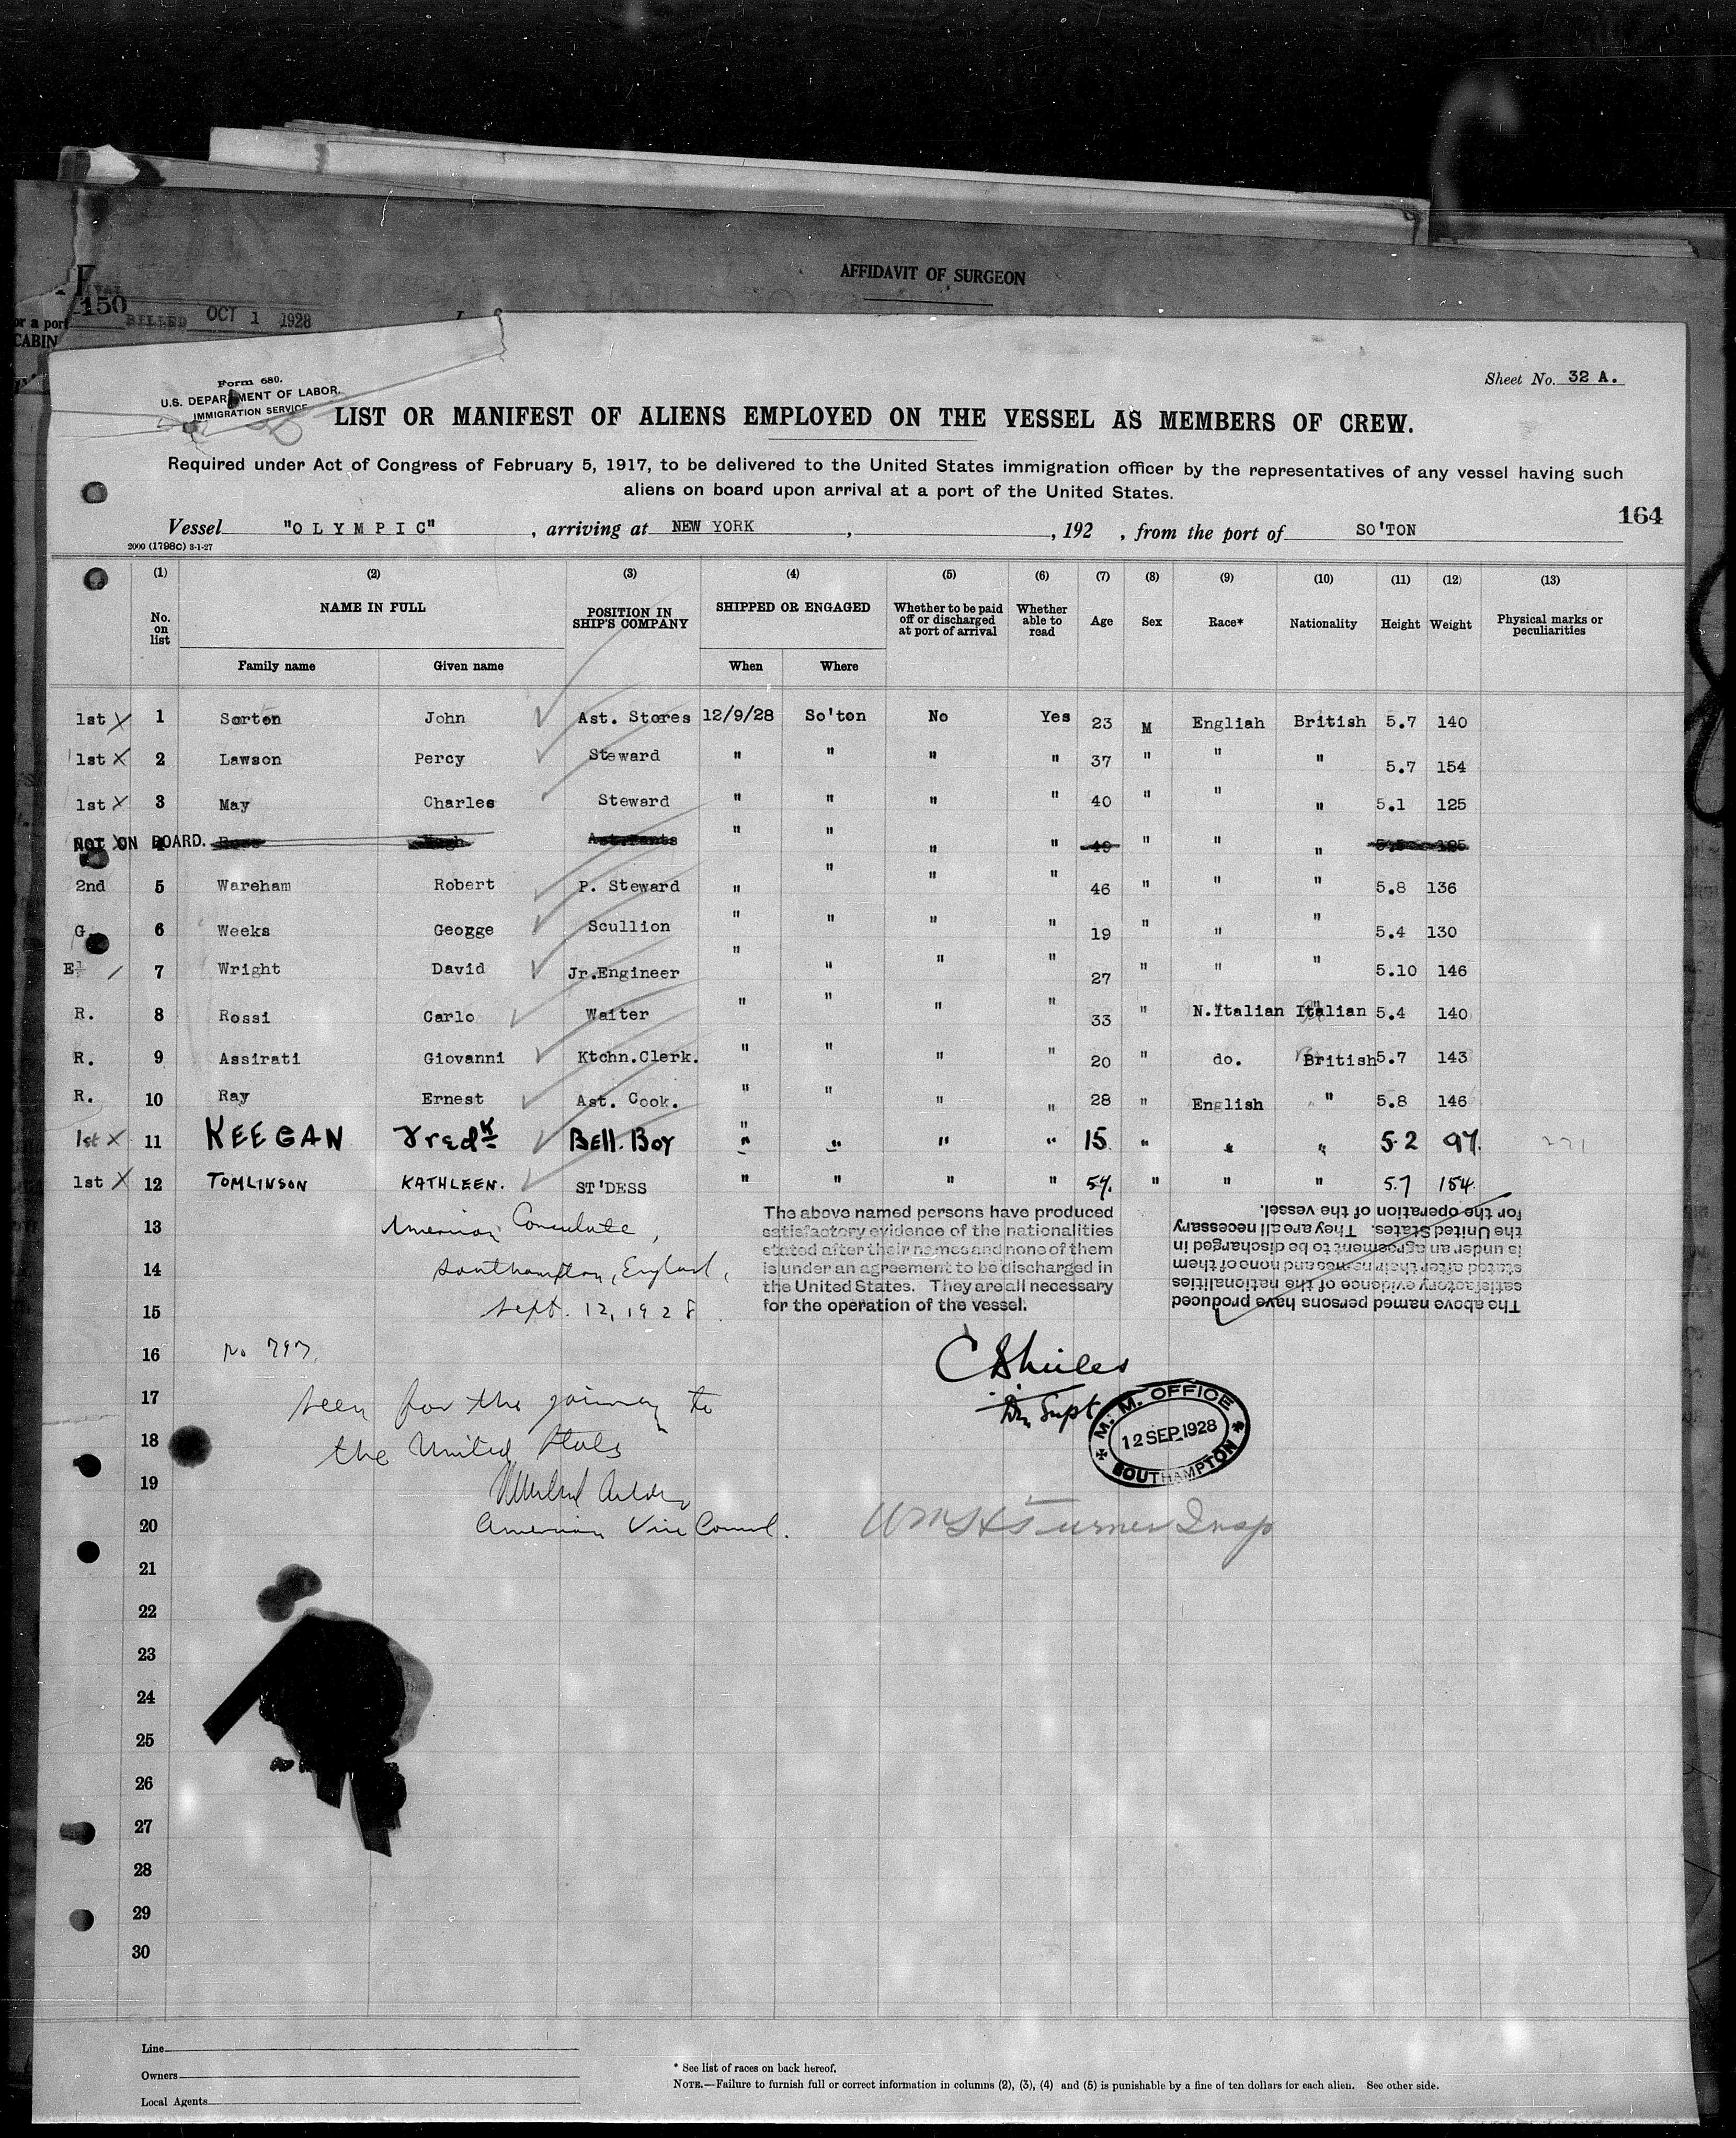 AFFIDAVIT OF SURGEON
150
BILLED OCT 1 1928
or a port
CABIN
Form 680.
U.S. DEPARTMENT OF LABOR.
IMMIGRATION SERVICE
Sheet No. 32 A.
LIST OR MANIFEST OF ALIENS EMPLOYED ON THE VESSEL AS MEMBERS OF CREW.
Required under Act of Congress of February 5, 1917, to be delivered to the United States immigration officer by the representatives of any vessel having such
aliens on board upon arrival at a port of the United States.
164
Vessel "OLYMPIC", arriving at NEW YORK, , 192 , from the port of SO'TON
2000 (1798C) 3-1-27
(1) (2) (3) (4) (5) (6) (7) (8) (9) (10) (11) (12) (13)
No. on list NAME IN FULL POSITION IN SHIP'S COMPANY SHIPPED OR ENGAGED Whether to be paid off or discharged at port of arrival Whether able to read Age Sex Race* Nationality Height Weight Physical marks or peculiarities
Family name Given name When Where
1st X 1 Sorton John Ast. Stores 12/9/28 So'ton No Yes 23 M English British 5.7 140
1st X 2 Lawson Percy Steward " " " " 37 " " " 5.7 154
1st X 3 May Charles Steward " " " " 40 " " " 5.1 125
NOT ON BOARD. 4 Hugh Ast.Pants " " " " 49 " " "
2nd 5 Wareham Robert P. Steward " " " " 46 " " " 5.8 136
G. 6 Weeks Geogge Scullion " " " " 19 " " " 5.4 130
E½ / 7 Wright David Jr.Engineer " " " " 27 " " " 5.10 146
R. 8 Rossi Carlo Waiter " " " " 33 " N.Italian Italian 5.4 140
R. 9 Assirati Giovanni Ktchn.Clerk. " " " " 20 " do. British 5.7 143
R. 10 Ray Ernest Ast. Cook. " " " " 28 " English " 5.8 146
1st X 11 KEEGAN Fredk Bell.Boy " " " " 15 " " " 5.2 97.
1st X 12 TOMLINSON KATHLEEN. ST'DESS " " " " 54. " " " 5.7 154
13 American Consulate,
14 Southampton, England,
15 Sept. 12, 1928.
The above named persons have produced
satisfactory evidence of the nationalities
stated after their names and none of them
is under an agreement to be discharged in
the United States. They are all necessary
for the operation of the vessel.
The above named persons have produced
satisfactory evidence of the nationalities
stated after their names and none of them
is under an agreement to be discharged in
the United States. They are all necessary
for the operation of the vessel.
16 No 797.
17 Seen for the journey to
18 the United States
19
20 American Vice Consul.
Supt
M. M. OFFICE
12 SEP. 1928
SOUTHAMPTON
Wm H Turner Insp
21
22
23
24
25
26
27
28
29
30
Line
Owners
Local Agents
* See list of races on back hereof.
NOTE.—Failure to furnish full or correct information in columns (2), (3), (4) and (5) is punishable by a fine of ten dollars for each alien. See other side.